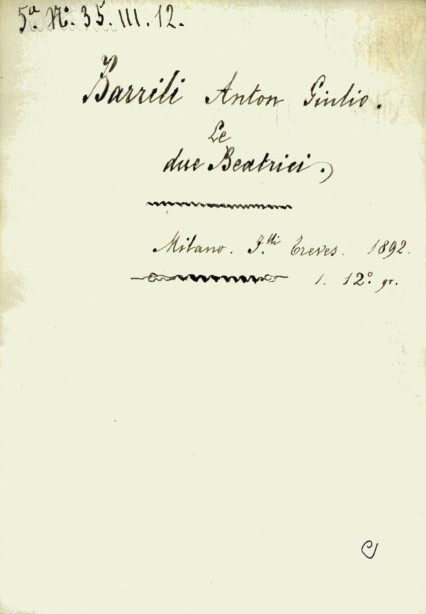 5ª Nº 35. III. 12.
Barrili Anton Giulio.
Le
due Beatrici.
Milano. F.lli Treves. 1892.
1. 12º. gr.